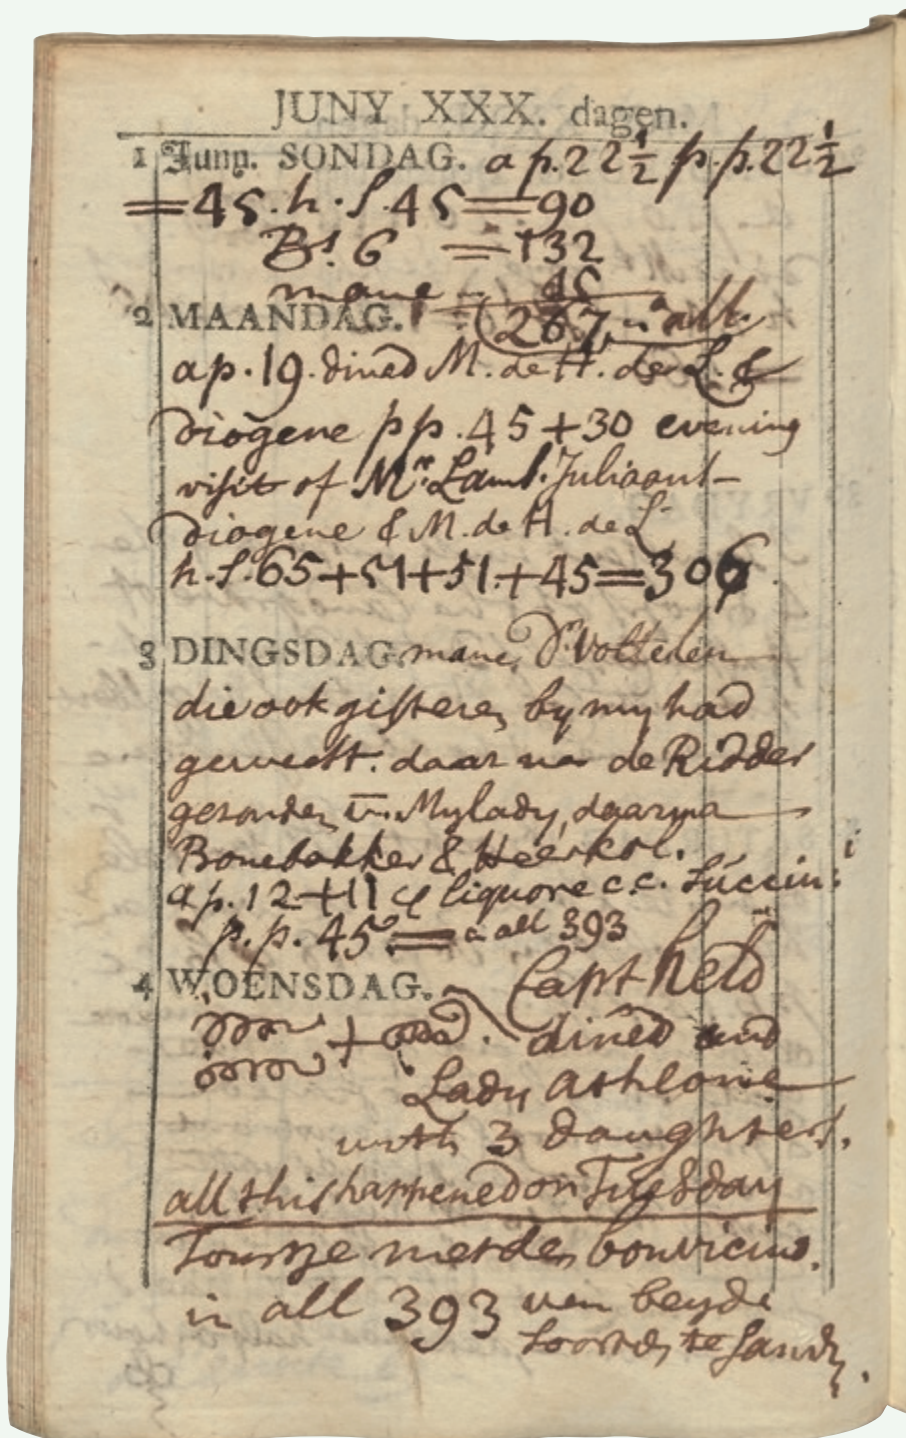 JUNY XXX. dagen.
1 Juny. SONDAG. a p. 22 1/2 p. p. 22 1/2
= 45. h. s. 45 = 90
Bs. 6 = 132
mane - 45
2 MAANDAG. (267, in all.
ap. 19. dined M. de H. de L. &
Diogene pp. 45 + 30 evening
visit of Mr. Lamb. Juliaans
Diogene & M. de H. de L.
h. s. 65 + 51 + 51. + 45 = 306
3 DINGSDAG mane, Dr. Volteken
die ook gisteren by my had
geweest. daar na de Ridder
gesonden Mylady, daarna
Bonebakker &
ap. 12 + 11 & liquore c.c. Succin: i
p. p. 45 = in all 393
4 WOENSDAG. Capt Held
+ dined and
Lady Athlone
with 3 daughters.
all this happened on Tuesday
Toustje met den bonvicius.
in all 393 van beyde
soorten te samen.